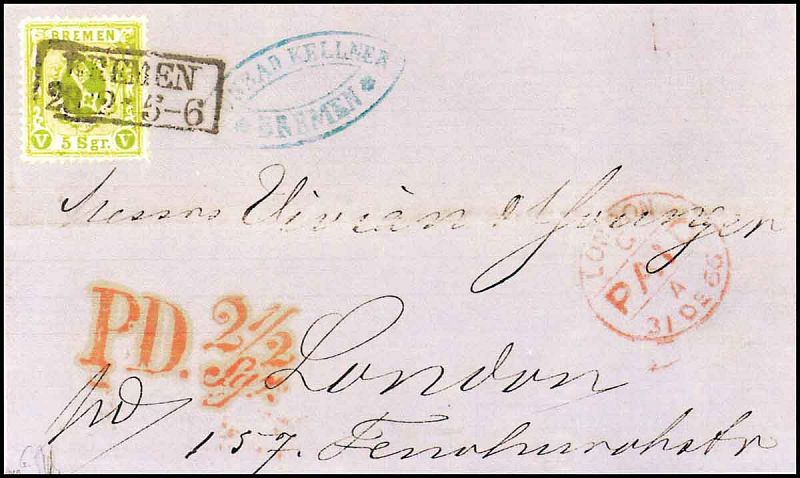 BREMEN
V 5 Sgr. V
BREMEN
5-6
KELLNER
BREMEN
Messrs Vivian & Younger
LONDON
PAID
A
31 DE 66
PD. 2 1/2 Sgr.
London
pd
157. Fenchurchstr